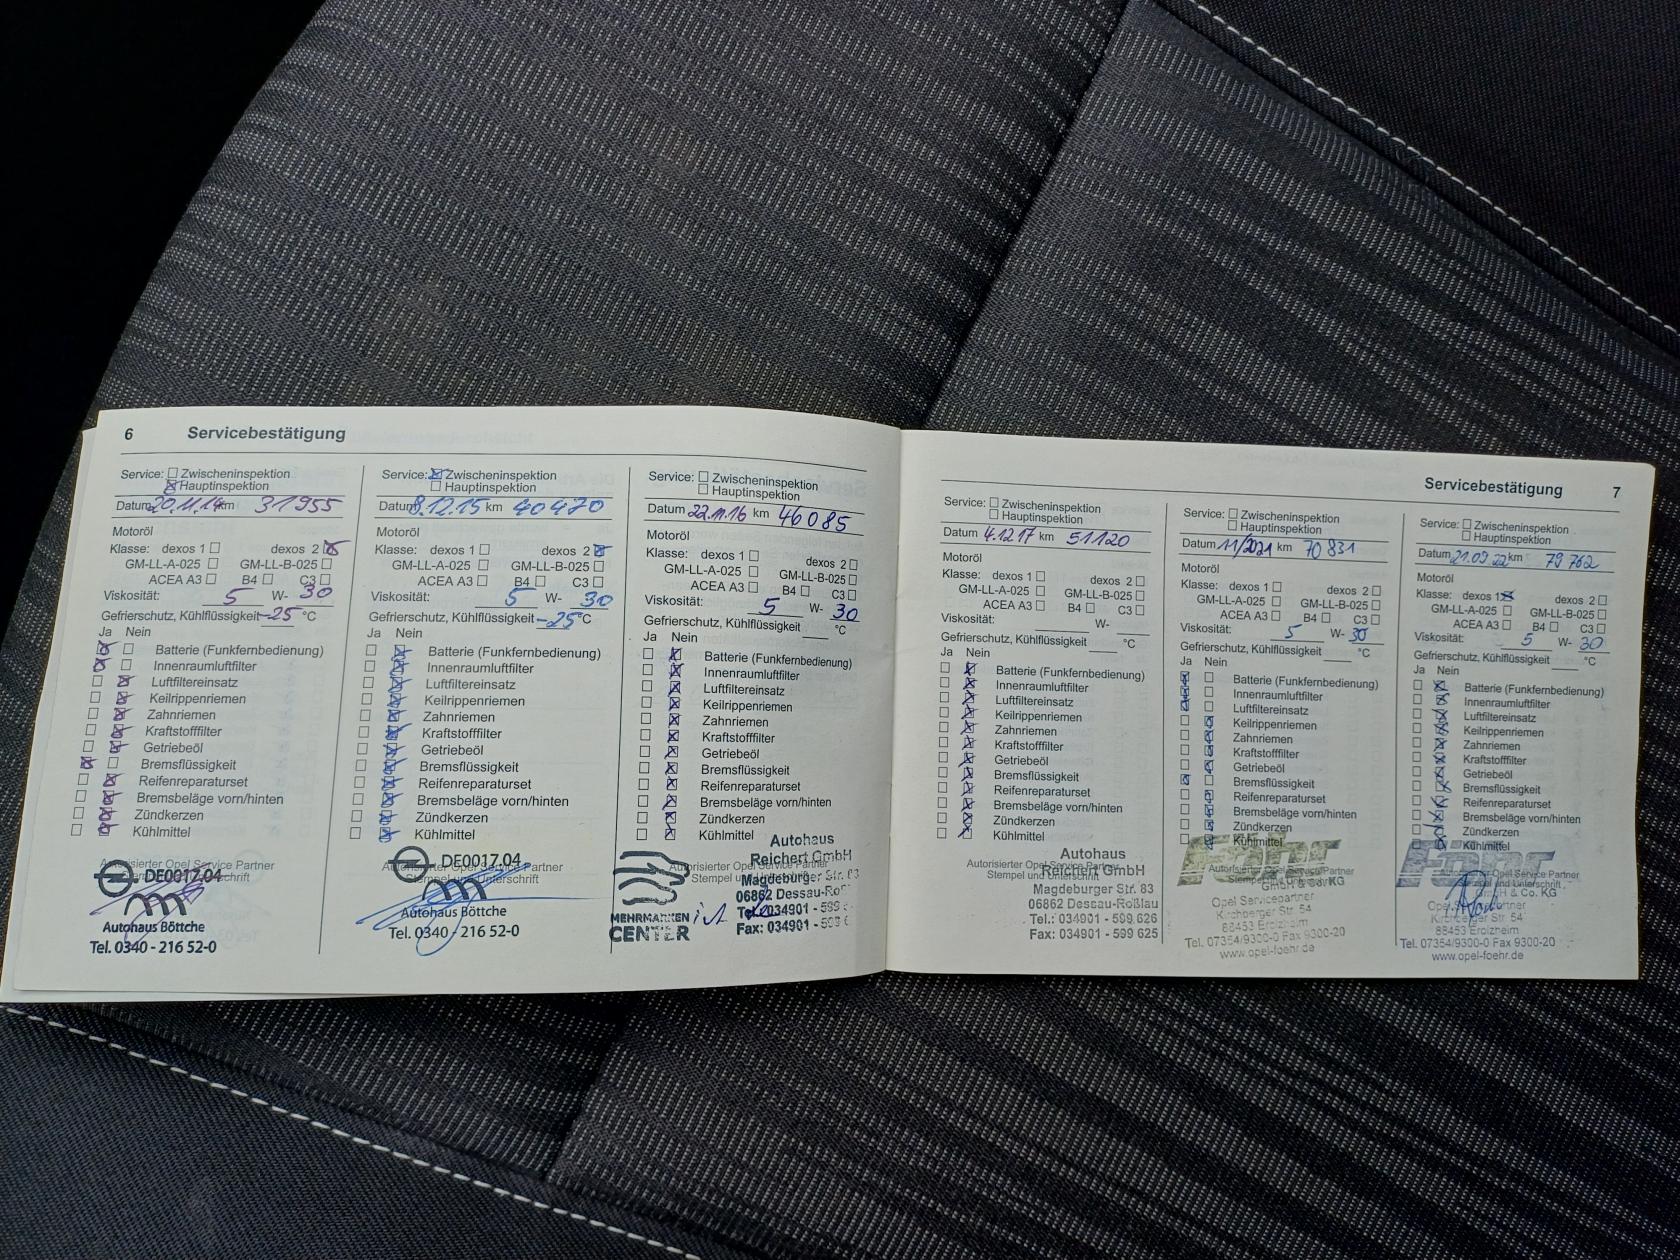 6 Servicebestätigung
Service: Zwischeninspektion
Hauptinspektion
Datum 20.11.14 km 31955
Motoröl
Klasse: dexos 1 dexos 2
GM-LL-A-025 GM-LL-B-025
ACEA A3 B4 C3
Viskosität: 5 W- 30
Gefrierschutz, Kühlflüssigkeit -25 °C
Ja Nein
Batterie (Funkfernbedienung)
Innenraumluftfilter
Luftfiltereinsatz
Keilrippenriemen
Zahnriemen
Kraftstofffilter
Getriebeöl
Bremsflüssigkeit
Reifenreparaturset
Bremsbeläge vorn/hinten
Zündkerzen
Kühlmittel
Autorisierter Opel Service Partner
Stempel und Unterschrift
DE0017.04
Autohaus Böttche
Tel. 0340 - 216 52-0
Service: Zwischeninspektion
Hauptinspektion
Datum 8.12.15 km 40470
Motoröl
Klasse: dexos 1 dexos 2
GM-LL-A-025 GM-LL-B-025
ACEA A3 B4 C3
Viskosität: 5 W- 30
Gefrierschutz, Kühlflüssigkeit -25 °C
Ja Nein
Batterie (Funkfernbedienung)
Innenraumluftfilter
Luftfiltereinsatz
Keilrippenriemen
Zahnriemen
Kraftstofffilter
Getriebeöl
Bremsflüssigkeit
Reifenreparaturset
Bremsbeläge vorn/hinten
Zündkerzen
Kühlmittel
DE0017.04
Autorisierter Opel Service Partner
Stempel und Unterschrift
Autohaus Böttche
Tel. 0340 - 216 52-0
Service: Zwischeninspektion
Hauptinspektion
Datum 22.11.16 km 46085
Motoröl
Klasse: dexos 1 dexos 2
GM-LL-A-025 GM-LL-B-025
ACEA A3 B4 C3
Viskosität: 5 W- 30
Gefrierschutz, Kühlflüssigkeit °C
Ja Nein
Batterie (Funkfernbedienung)
Innenraumluftfilter
Luftfiltereinsatz
Keilrippenriemen
Zahnriemen
Kraftstofffilter
Getriebeöl
Bremsflüssigkeit
Reifenreparaturset
Bremsbeläge vorn/hinten
Zündkerzen
Kühlmittel
Autohaus
Reichert GmbH
Autorisierter Opel Service Partner
Stempel und Unterschrift
Magdeburger Str. 83
06862 Dessau-Ro
MEHRMARKEN
CENTER
Tel.: 034901 - 599 6
Fax: 034901 - 599 6
Servicebestätigung 7
Service: Zwischeninspektion
Hauptinspektion
Datum 4.12.17 km 51120
Motoröl
Klasse: dexos 1 dexos 2
GM-LL-A-025 GM-LL-B-025
ACEA A3 B4 C3
Viskosität: W-
Gefrierschutz, Kühlflüssigkeit °C
Ja Nein
Batterie (Funkfernbedienung)
Innenraumluftfilter
Luftfiltereinsatz
Keilrippenriemen
Zahnriemen
Kraftstofffilter
Getriebeöl
Bremsflüssigkeit
Reifenreparaturset
Bremsbeläge vorn/hinten
Zündkerzen
Kühlmittel
Autohaus
Autorisierter Opel Service Partner
Reichert GmbH
Stempel und Unterschrift
Magdeburger Str. 83
06862 Dessau-Roßlau
Tel.: 034901 - 599 626
Fax: 034901 - 599 625
Service: Zwischeninspektion
Hauptinspektion
Datum 11/2021 km 70831
Motoröl
Klasse: dexos 1 dexos 2
GM-LL-A-025 GM-LL-B-025
ACEA A3 B4 C3
Viskosität: 5 W- 30
Gefrierschutz, Kühlflüssigkeit °C
Ja Nein
Batterie (Funkfernbedienung)
Innenraumluftfilter
Luftfiltereinsatz
Keilrippenriemen
Zahnriemen
Kraftstofffilter
Getriebeöl
Bremsflüssigkeit
Reifenreparaturset
Bremsbeläge vorn/hinten
Zündkerzen
Kühlmittel
Föhr
Autorisierter Opel Service Partner
GmbH & Co. KG
Opel Servicepartner
Kirchberger Str. 54
88453 Erolzheim
Tel. 07354/9300-0 Fax 9300-20
www.opel-foehr.de
Service: Zwischeninspektion
Hauptinspektion
Datum 21.09.22 km 79762
Motoröl
Klasse: dexos 1 dexos 2
GM-LL-A-025 GM-LL-B-025
ACEA A3 B4 C3
Viskosität: 5 W- 30
Gefrierschutz, Kühlflüssigkeit °C
Ja Nein
Batterie (Funkfernbedienung)
Innenraumluftfilter
Luftfiltereinsatz
Keilrippenriemen
Zahnriemen
Kraftstofffilter
Getriebeöl
Bremsflüssigkeit
Reifenreparaturset
Bremsbeläge vorn/hinten
Zündkerzen
Kühlmittel
Föhr
Autorisierter Opel Service Partner
Stempel und Unterschrift
GmbH & Co. KG
Opel Servicepartner
Kirchberger Str. 54
88453 Erolzheim
Tel. 07354/9300-0 Fax 9300-20
www.opel-foehr.de